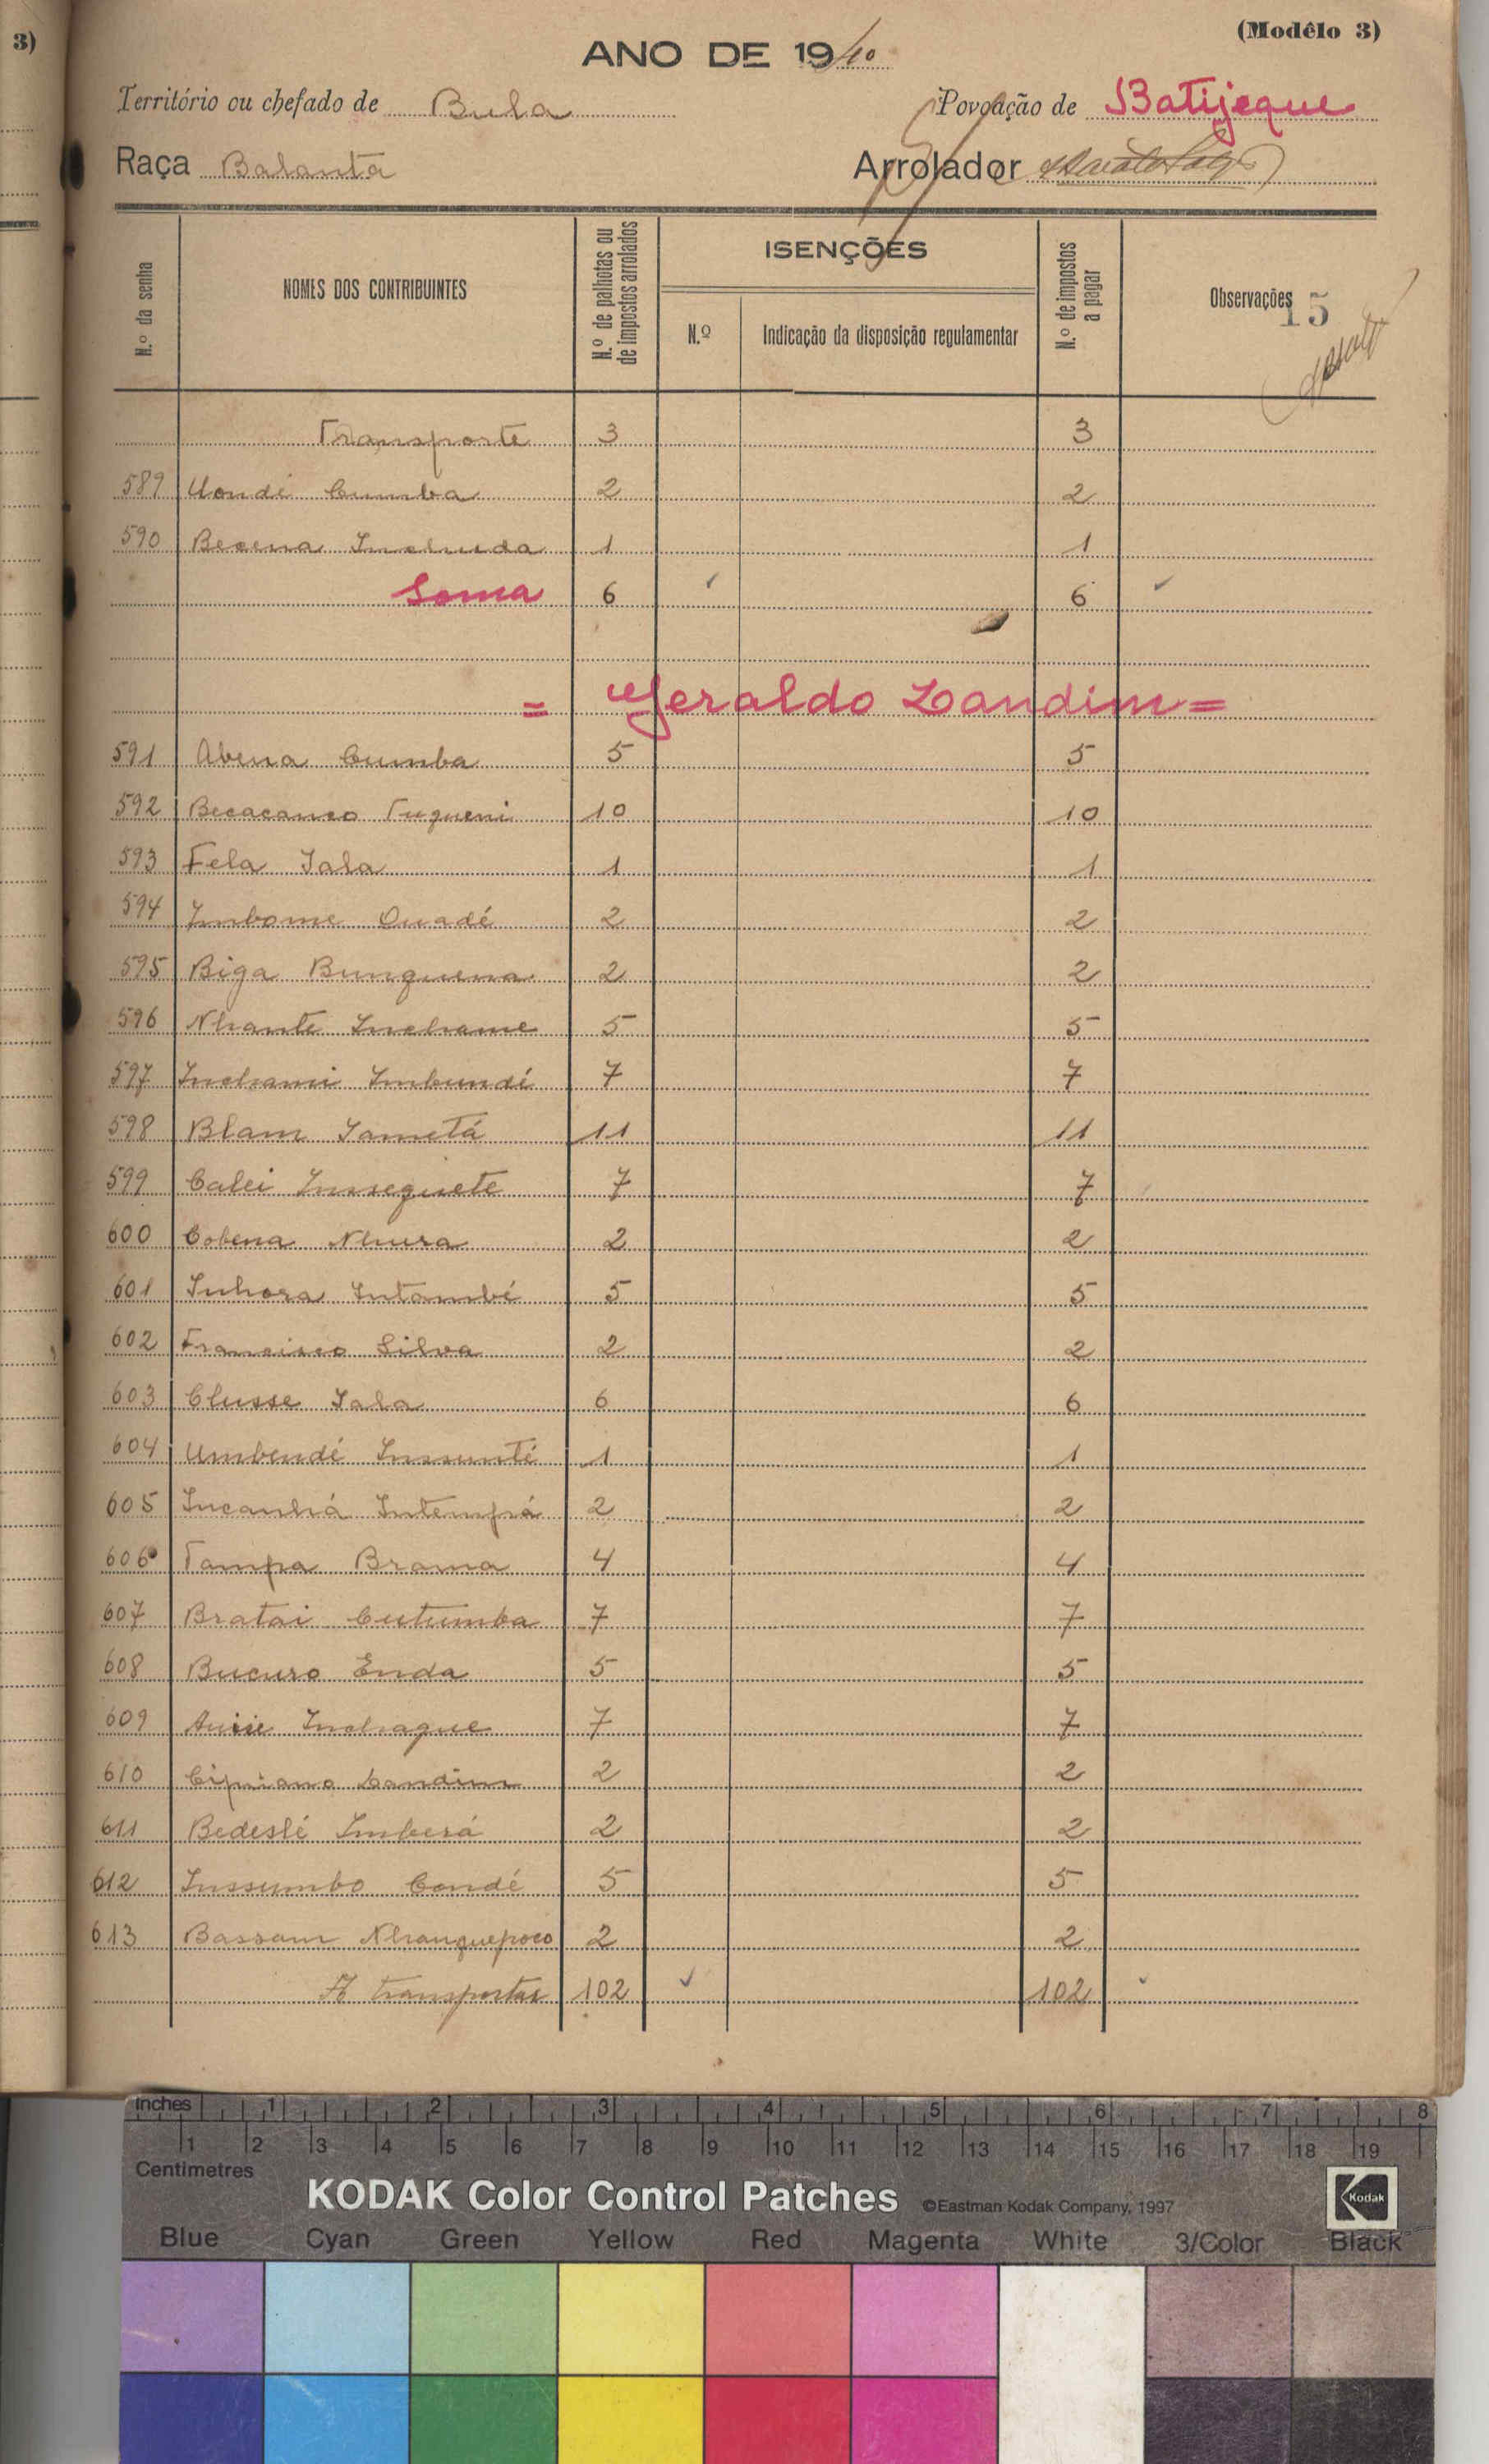 3)
(Modêlo 3)
ANO DE 1940
Território ou chefado de Bula Povoação de Batijeque
Raça Balanta Arrolador
N.º da senha NOMES DOS CONTRIBUINTES N.º de palhotas ou de impostos arrolados ISENÇÕES N.º Indicação da disposição regulamentar N.º de impostos a pagar Observações
15
Transporte 3 3
589 Uondé Cumba 2 2
590 Becena Inchuda 1 1
Soma 6 6
= Geraldo Landim =
591 Abena Cumba 5 5
592 Becacanco Tuqueni 10 10
593 Fela Iala 1 1
594 Imbome Ouadé 2 2
595 Biga Bunquena 2 2
596 Nhante Inchame 5 5
597 Inchami Imbundé 7 7
598 Blam Iametá 11 11
599 Calei Inseguete 7 7
600 Cobena Nhura 2 2
601 Inhora Intambé 5 5
602 Francisco Silva 2 2
603 Clusse Iala 6 6
604 Umbendé Insunté 1 1
605 Incanhá Intempá 2 2
606 Tampa Brama 4 4
607 Bratai Cutumba 7 7
608 Bucuro Enda 5 5
609 Inchague 7 7
610 Cipriano Landim 2 2
611 Bedeslé Imberá 2 2
612 Inssumbo Condé 5 5
613 Bassam Nhanquepoco 2 2
A transportar 102 102
Inches 1 2 3 4 5 6 7 8
1 2 3 4 5 6 7 8 9 10 11 12 13 14 15 16 17 18 19
Centimetres
KODAK Color Control Patches ©Eastman Kodak Company, 1997 Kodak
Blue Cyan Green Yellow Red Magenta White 3/Color Black